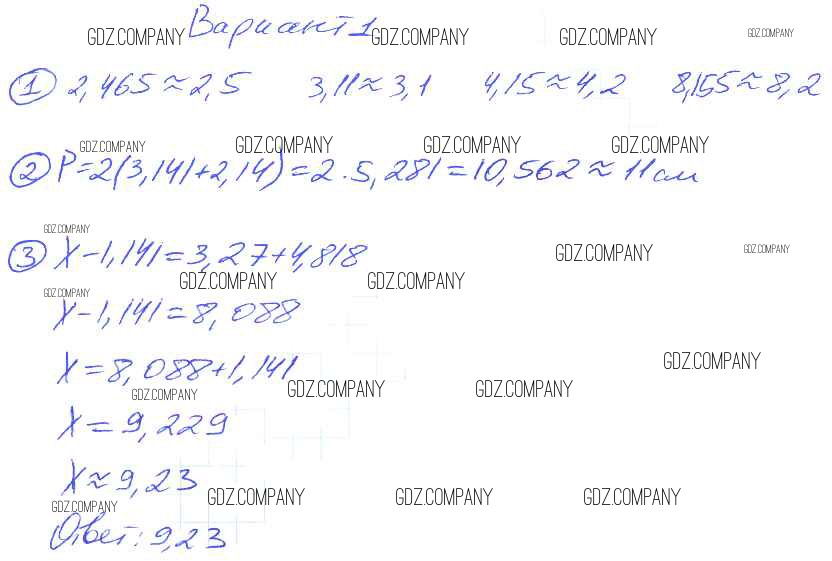 Вариант 1
GDZ.COMPANY GDZ.COMPANY GDZ.COMPANY GDZ.COMPANY
1 2,465≈2,5 3,11≈3,1 4,15≈4,2 8,155≈8,2
GDZ.COMPANY GDZ.COMPANY GDZ.COMPANY GDZ.COMPANY
2 P=2(3,141+2,14)=2·5,281=10,562≈11см
GDZ.COMPANY
3 X-1,141=3,27+4,818
GDZ.COMPANY GDZ.COMPANY
GDZ.COMPANY GDZ.COMPANY
GDZ.COMPANY
X-1,141=8,088
X=8,088+1,141
GDZ.COMPANY
GDZ.COMPANY GDZ.COMPANY GDZ.COMPANY
X=9,229
X≈9,23
GDZ.COMPANY GDZ.COMPANY GDZ.COMPANY GDZ.COMPANY
Ответ: 9,23